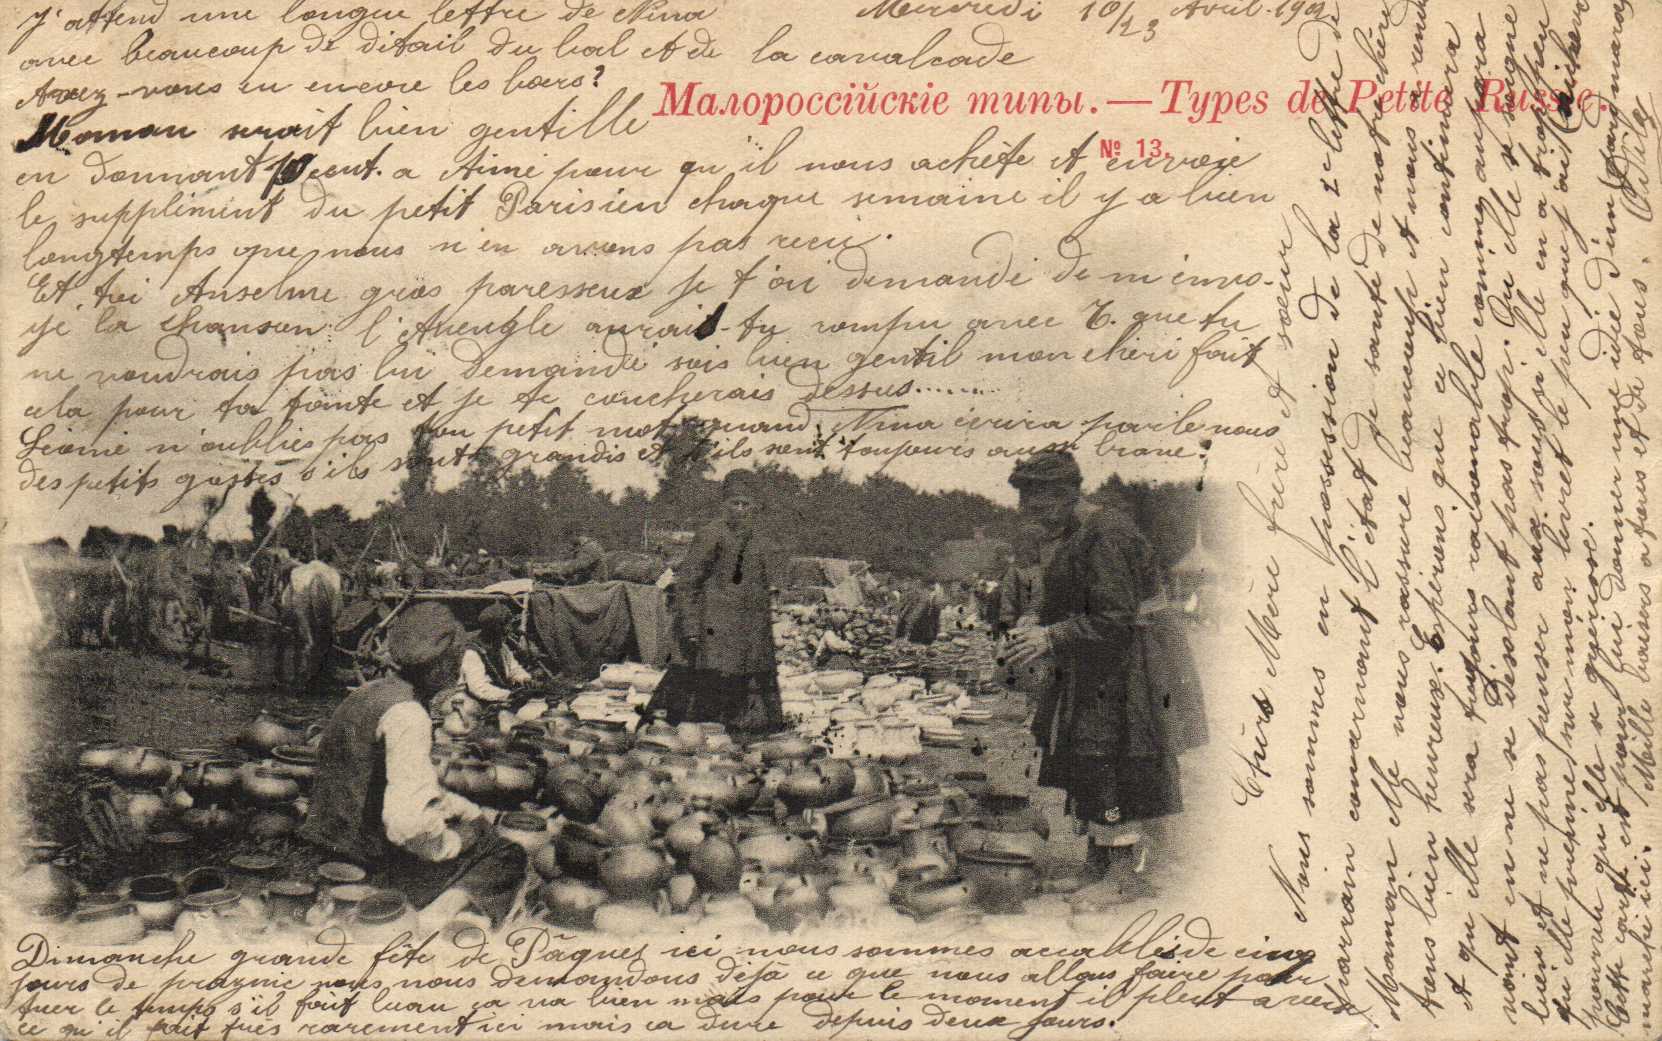 Mercredi 10/23 Avril 190
Малороссійскіе типы. — Types de Petite Russie.
№ 13.
Chers Mère frère et sœur
Nous sommes en possession de la 2e lettre de
parrain concernant l'état de santé de notre chère
Maman elle nous rassure beaucoup et nous rend
tous bien heureux. Espérons que ce bien continuera
et qu'elle sera toujours raisonnable comme auparavant
en ne se désolant pas trop. Qu'elle se soigne
bien et ne pas penser aux sous si elle en a trop peu
qu'elle prenne sur mon livret le peu que j'ai
pourvu qu'elle se guérisse.
Cette carte est pour lui donner une idée d'un
marché ici. Mille baisers à tous et de tous.
J'attend une longue lettre de Nina
avec beaucoup de détail du bal et de la cavalcade
Avez-vous eu encore les boers?
Maman serait bien gentille
en donnant cent. a Aimé pour qu'il nous achète et envoie
le supplément du petit Parisien chaque semaine il y a bien
longtemps que nous n'en avons pas reçu.
Et toi Anselme gros paresseux je t'ai demandé de m'envo-
yé la chanson l'Aveugle aurais-tu rompu avec T. que tu
ne voudrais pas lui demandé sois bien gentil mon chéri fait
cela pour ta tante et je te coucherais dessus......
Léonie n'oublies pas ton petit mot quand Nina écrira parle nous
des petits gosses s'ils sont grandis et s'ils sont toujours aussi brave.
Dimanche grande fête de Pâques ici nous sommes accablés de cinq
jours de praznic nous nous demandons déjà ce que nous allons faire pour
tuer le temps s'il fait beau ça va bien mais pour le moment il pleut à verse
ce qu'il fait très rarement ici mais ça dure depuis deux jours.